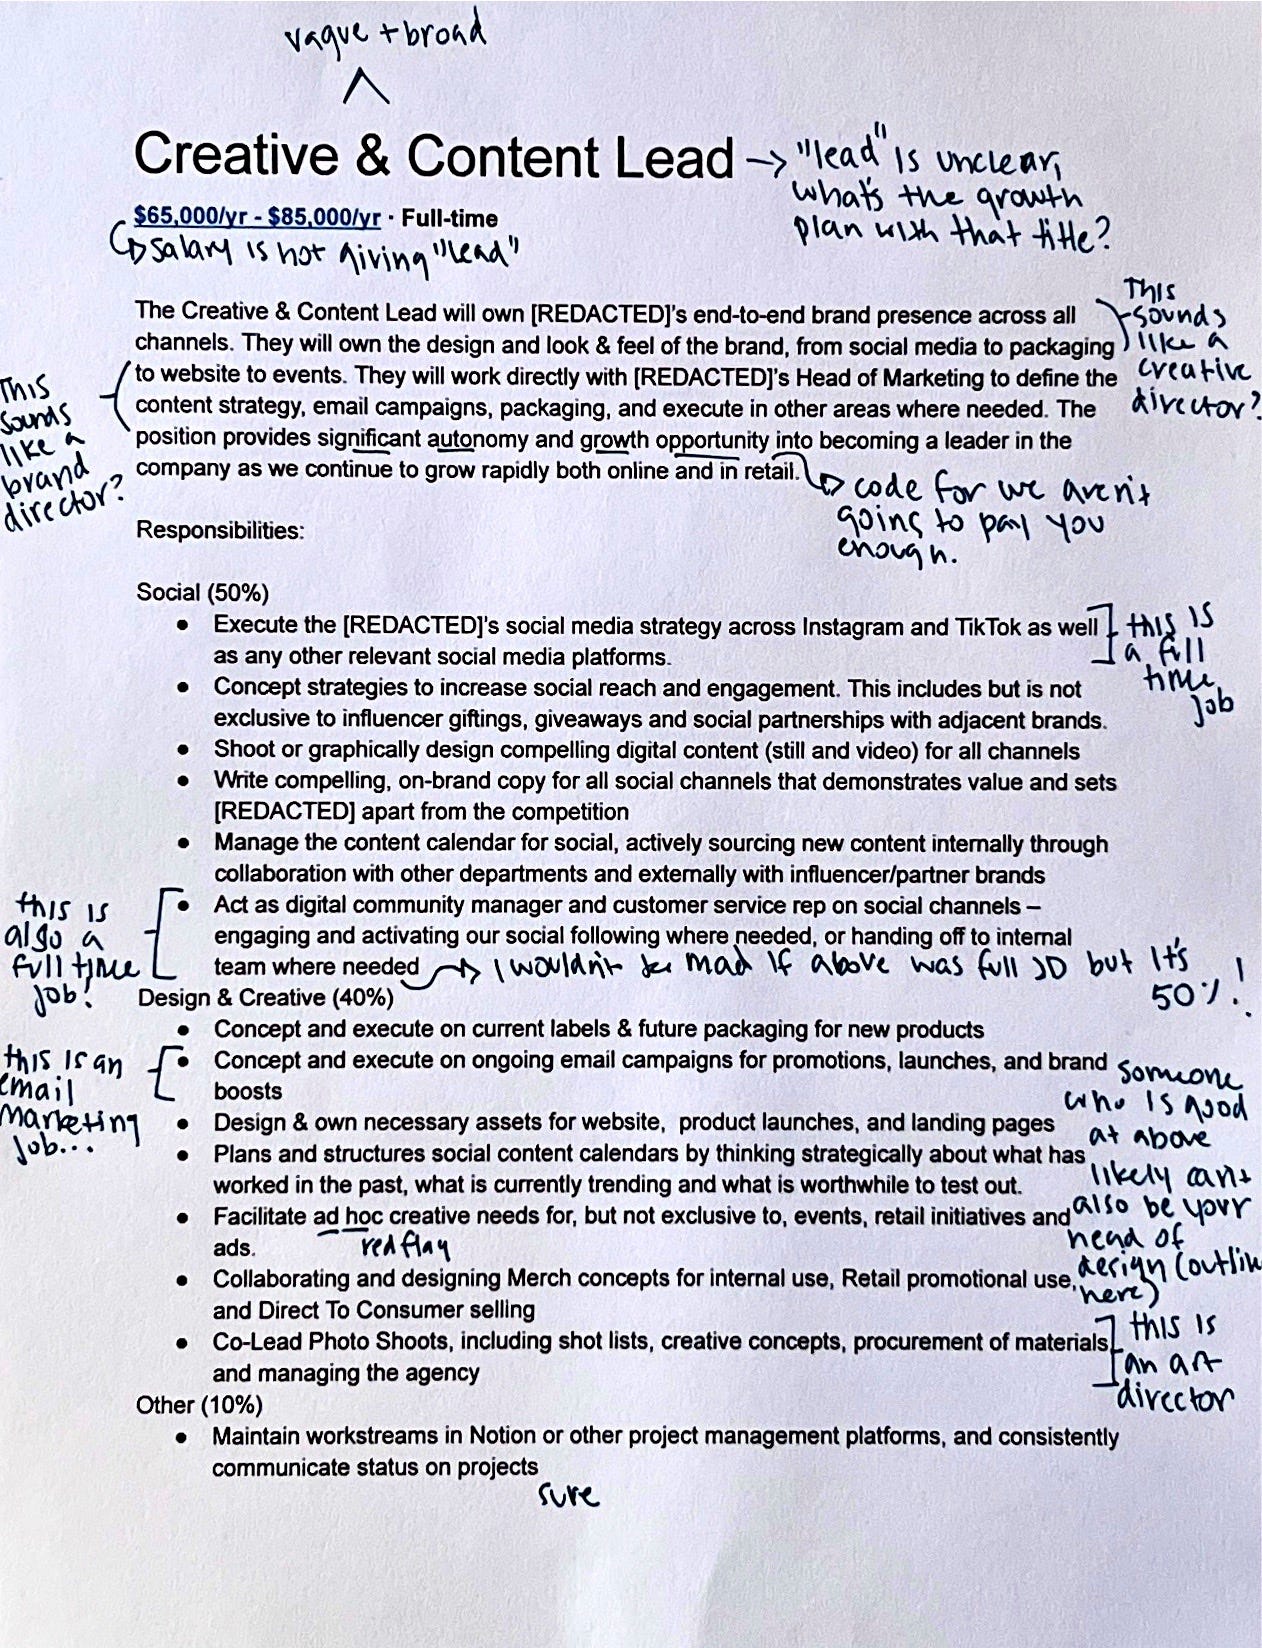 vague + broad
Creative & Content Lead → "lead" is unclear,
what's the growth
plan with that title?
$65,000/yr - $85,000/yr · Full-time
salary is not giving "lead"
The Creative & Content Lead will own [REDACTED]'s end-to-end brand presence across all
channels. They will own the design and look & feel of the brand, from social media to packaging
to website to events. They will work directly with [REDACTED]'s Head of Marketing to define the
content strategy, email campaigns, packaging, and execute in other areas where needed. The
position provides significant autonomy and growth opportunity into becoming a leader in the
company as we continue to grow rapidly both online and in retail.
This
sounds
like a
creative
director?
This
sounds
like a
brand
director?
code for we aren't
going to pay you
enough.
Responsibilities:
Social (50%)
• Execute the [REDACTED]'s social media strategy across Instagram and TikTok as well
as any other relevant social media platforms.
this is
a full
time
job
• Concept strategies to increase social reach and engagement. This includes but is not
exclusive to influencer giftings, giveaways and social partnerships with adjacent brands.
• Shoot or graphically design compelling digital content (still and video) for all channels
• Write compelling, on-brand copy for all social channels that demonstrates value and sets
[REDACTED] apart from the competition
• Manage the content calendar for social, actively sourcing new content internally through
collaboration with other departments and externally with influencer/partner brands
• Act as digital community manager and customer service rep on social channels –
engaging and activating our social following where needed, or handing off to internal
team where needed
this is
also a
full time
job!
I wouldn't be mad if above was full JD but it's
50%!
Design & Creative (40%)
• Concept and execute on current labels & future packaging for new products
• Concept and execute on ongoing email campaigns for promotions, launches, and brand
boosts
this is an
email
marketing
job...
• Design & own necessary assets for website, product launches, and landing pages
• Plans and structures social content calendars by thinking strategically about what has
worked in the past, what is currently trending and what is worthwhile to test out.
• Facilitate ad hoc creative needs for, but not exclusive to, events, retail initiatives and
ads.
red flag
someone
who is good
at above
likely can't
also be your
head of
design (outli
here)
• Collaborating and designing Merch concepts for internal use, Retail promotional use,
and Direct To Consumer selling
• Co-Lead Photo Shoots, including shot lists, creative concepts, procurement of materials
and managing the agency
this is
an art
director
Other (10%)
• Maintain workstreams in Notion or other project management platforms, and consistently
communicate status on projects
sure